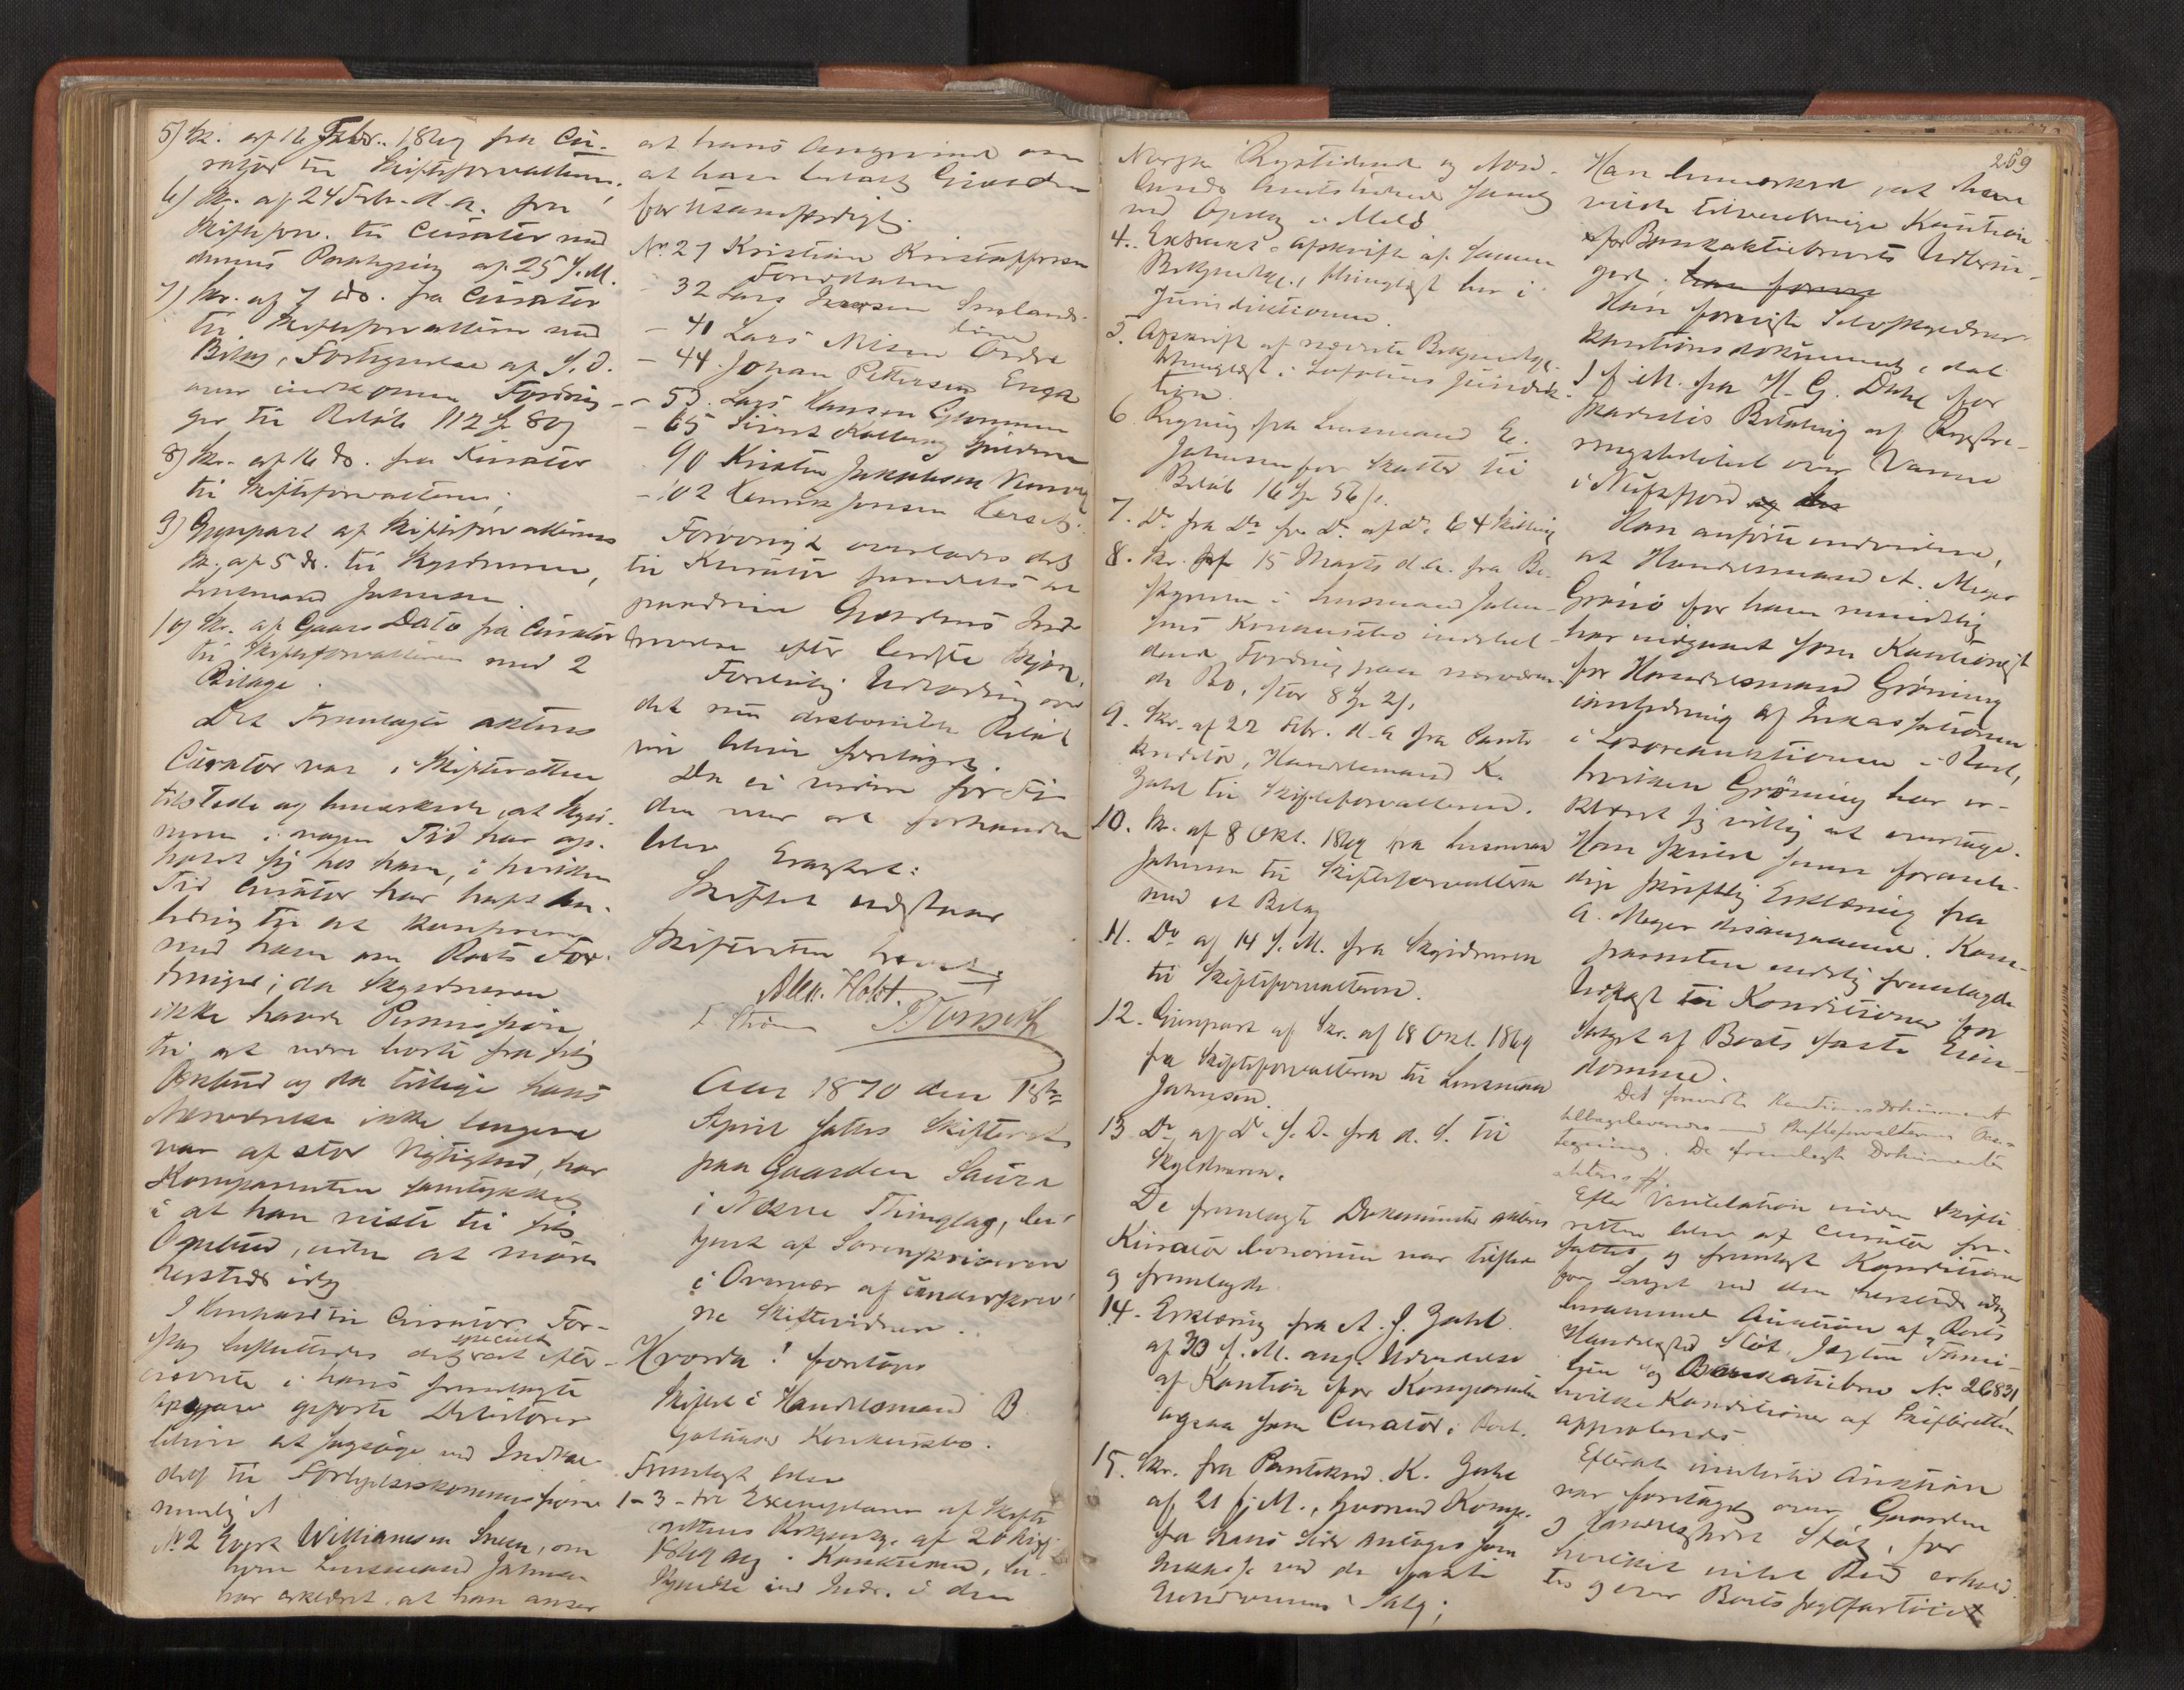 5) Skr. af 16 Febr. 1869 fra Cu-
rator til Skifteforvalteren.
6) Skr. af 24 Febr. d.a. fra
Skifteforv. til Curator med
dennes Paategning af 25 s.M.
7) Skr. af 7 ds. fra Curator
til Skifteforvalteren med
Bilag, Fortegnelse af s.D.
over indkomne Fordrin-
ger til Beløb 112 80
8) Skr. af 16 ds. fra Kurator
til Skifteforvalteren.
9) Gjenpart af Skifteforvalterens
Skr. af 5 ds. til Skyldneren,
Lensmand Jahnsen.
10) Skr. af Gaars Dato fra Curator
til Skifteforvalteren med 2
Bilage.
Det Fremlagte akteres
Curator var i Skifteretten
tilstede og bemærkede, at Skyld-
neren i nogen Tid har op-
holdt sig hos ham, i hvilken
Tid Curator har havt An-
ledning til at konferere
med ham om Boets For-
dringer; da Skyldneren
ikke havde Permission
til at være borte fra sit
Ombud og da tillige hans
Nærværelse ikke længere
var af stor Vigtighed, har
Komparenten samtykket
i at han reiste til sit
Ombud, uden at møde
hersteds idag
I Henhold til Curators For-
slag besluttedes det specielt efter-
nævnte i hans fremlagte
Opgave opførte Debitorer
bliver at sagsøge ved Indkal-
delse til Forligelseskommissionen
nemlig
No 2 Evert Williamsen Sneen, om
hvem Lensmand Jahnsen
har erklæret, at han anser
at hans Angivende om
at have betalt Gjælden
for usandfærdigt.
No 27 Kristian Kristoffersen
Forsdalen
- 32 Lars Iversen Smaalands-
- 41 Lars Nilsen Ördre
- 44. Johan Pettersen Enga
- 53. Lars Hansen
- 65 Sivert
90 Kristen Jakobsen
- 102 Henrik Jensen
Forövrigt overlodes det
til Kurator fremdeles at
paadrive Gjældens Ind-
drivelse efter bedste Skjøn.
Foreløbig Udlodning over
det nu disponible Beløb
vil blive foretaget.
Da ei videre for Ti-
den var at forhandle
blev Eragtet:
Skiftet udstaar
Skifteretten hævet.
Alex. Holst.
Aar 1870 den 18de
April sattes Skifteret
paa Gaarden Saura
i Nesne Thinglag, be-
tjent af Sorenskriveren
i Overvær af underskrev-
ne Skiftevidner.
Hvorda! foretoges
Skiftet i Handelsmand B
Galaaens Konkursbo.
Fremlagt blev
1-3 - tre Exemplarer af Skifte-
rettens Bekjendtg. af 20
1869 ang. Konkursen, be-
kjendte ved Indr. i den
Norske Rigstidende og Nord-
lands Amtstidende samt
ved Opslag i Melø
4. Extrakt-Afskrift af samme
Bekjendtg., thinglæst her i
Jurisdiktionen.
5. Afskrift af nævnte Bekjendtg.
thinglæst i Lofotens Jurisdik-
tion.
6. Regning fra Lensmand E.
Jahnsen for Skatter til
Beløb 16 Sp 56 s.
7. Do fra Do for Do af Do 64 Skilling
8. Skr. af 15 Marts d.A. fra Be-
styreren i Lensmand Jahn-
sens Konkursbo indehol-
dende Fordring paa nærværen-
de Bo, stor 8 Sp 2 s.
9. Skr. af 22 Febr. d.A fra Pante
kreditor, Handelsmand K.
Zahl til Skifteforvalteren.
10. Skr. af 8 Okt. 1869 fra Lensmand
Jahnsen til Skifteforvalteren
med et Bilag
11. Do af 14 s.M. fra Skyldneren
til Skifteforvalteren.
12. Gjenpart af Skr. af 18 Okt. 1869
fra Skifteforvalteren til Lensmand
Jahnsen.
13 Do af Do s.D. fra d.S. til
Skyldneren.
De fremlagte Dokumenter akteres
Kurator bonorum var tilstede
og fremlagde
14. Erklæring fra A. J. Zahl
af 30 s.M. ang. Udvidelse
af Kaution for Komparenten
ogsaa som Curator i Boet.
15. Skr. fra Pantekred. K. Zahl
af 21 f.M., hvorved Komp.
fra hans Side antages som
ved de faste
Eiendommes Salg;
269
Han bemærkede, at han
vilde tilveiebringe Kaution
for Bankaktiebrevets Udleve-
rgert. han forevi
Han foreviste Selvskyldner
Kautionsdokument, dat.
1 f.M. fra H. G. Dahl for
skadesløs Betaling af Registre-
ringsbeløbet over Varerne
i Nufsfjord og har
Han anførte endvidere,
at Handelsmand A. Meyer
Grønø for ham mundtlig
har vedgaaet som Kautionist
for Handelsmand Grøning
inddrivning af Inkassationen
i Løsøreauktionen i Røst,
hvilken Grøning har er-
klæret sig villig at overtage.
Han skulde senere foranle-
dige skriftlig Erklæring fra
A. Meyer desangaaende. Kom-
parenten endelig fremlagde
Udkast til Konditioner for
Salget af Boets faste Eien-
domme.
Det foreviste Kautionsdokument
tilbageleveredes med Skifteforvalterens Paa-
tegning. De fremlagte Dokumenter
akteres.
Efter Ventilation inden Skifte-
retten blev af Curator for-
fattet og fremlagt Konditioner
for Salget ved den hersteds idag
berammede Auktion af Boets
Handelssted Støt, Jagten Fami-
lien og Bankaktiebrev No 26831,
hvilke Konditioner af Skifteretten
approberedes
Efterat imidlertid Auktion
var foretaget over Gaarden
og Handelsstedet Støt, for
hvilket intet Bud erhold-
tes og over Boets Jagtfartøiet